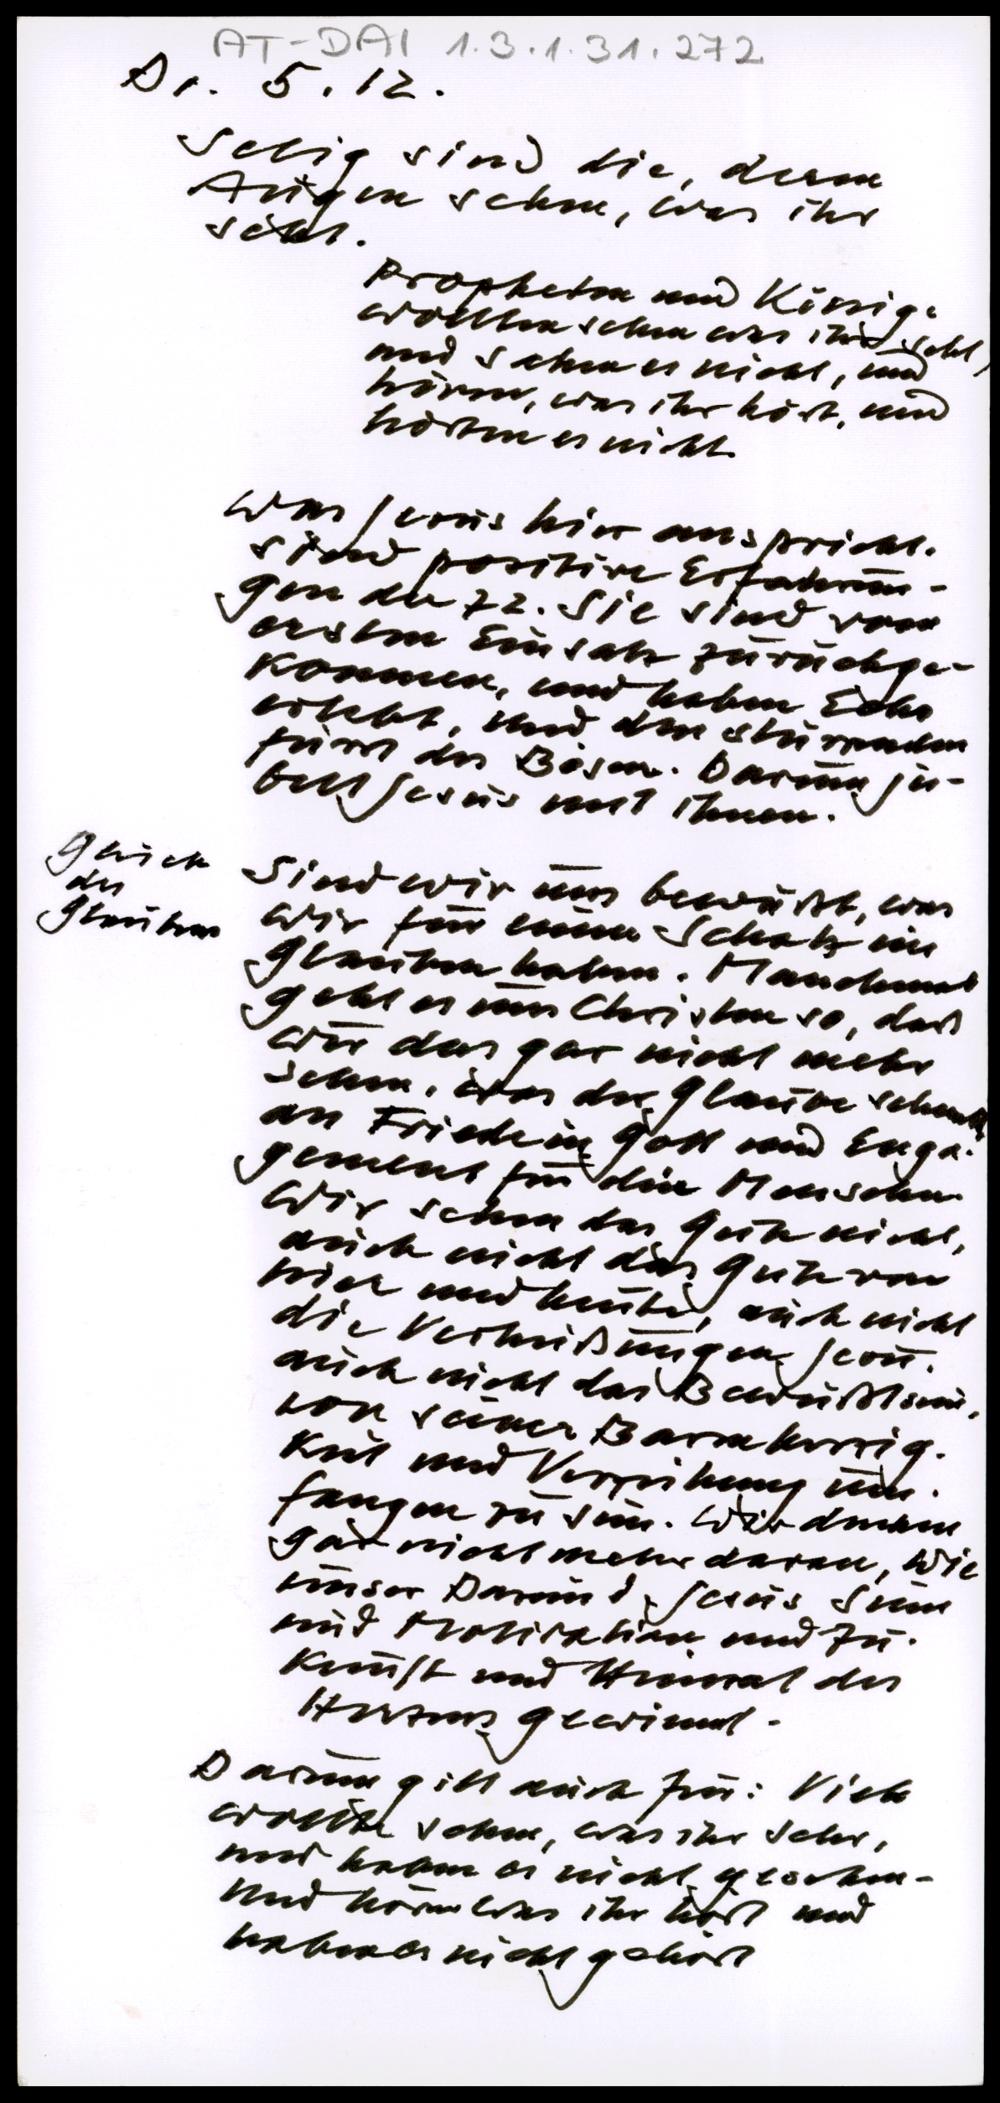 AT-DAI 1.3.1.31.272
Di. 5.12.
Selig sind die, deren
Augen sehen, was ihr
seht.
Propheten und Könige
wollten sehen was ihr seht,
und sahen es nicht, und
hören, was ihr hört, und
hörten es nicht.
Was Jesus hier anspricht.
sind positive Erfahrun-
gen der 72. Sie sind vom
ersten Einsatz zurückge-
kommen, und haben Echo
erlebt, und den stürzenden
Fürst des Bösen. Darum ju-
belt Jesus mit ihnen.
Glück
des
Glaubens
Sind wir uns bewußt, was
wir für einen Schatz im
Glauben haben. Manchmal
geht es uns Christen so, daß
wir das gar nicht mehr
sehen, was der Glaube schenkt
an Friede in Gott und Enga-
gement für die Menschen.
Wir sehen das Gute nicht,
auch nicht das Gute von
hier und heute, auch nicht
die Verheißungen Jesu.
auch nicht das Bewußtsein,
von seiner Barmherzig-
keit und Verzeihung um-
fangen zu sein. Wir denken
gar nicht mehr daran, wie
unser Dasein d. Jesus Sinn
und Motivation und Zu-
kunft und Heimat des
Herzens gewinnt.
Darum gilt auch für: Viele
wollten sehen, was ihr seht,
und haben es nicht gesehen-
Und hören was ihr hört und
haben es nicht gehört